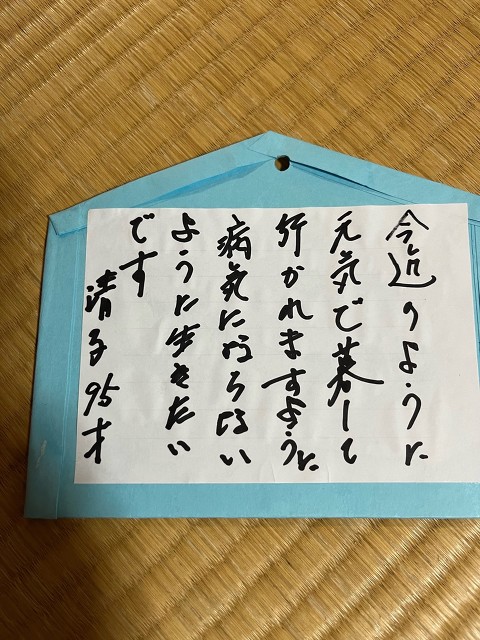 今迄のように
元気で暮して
行かれますように
病気にならない
ように生きたい
です
清子95才